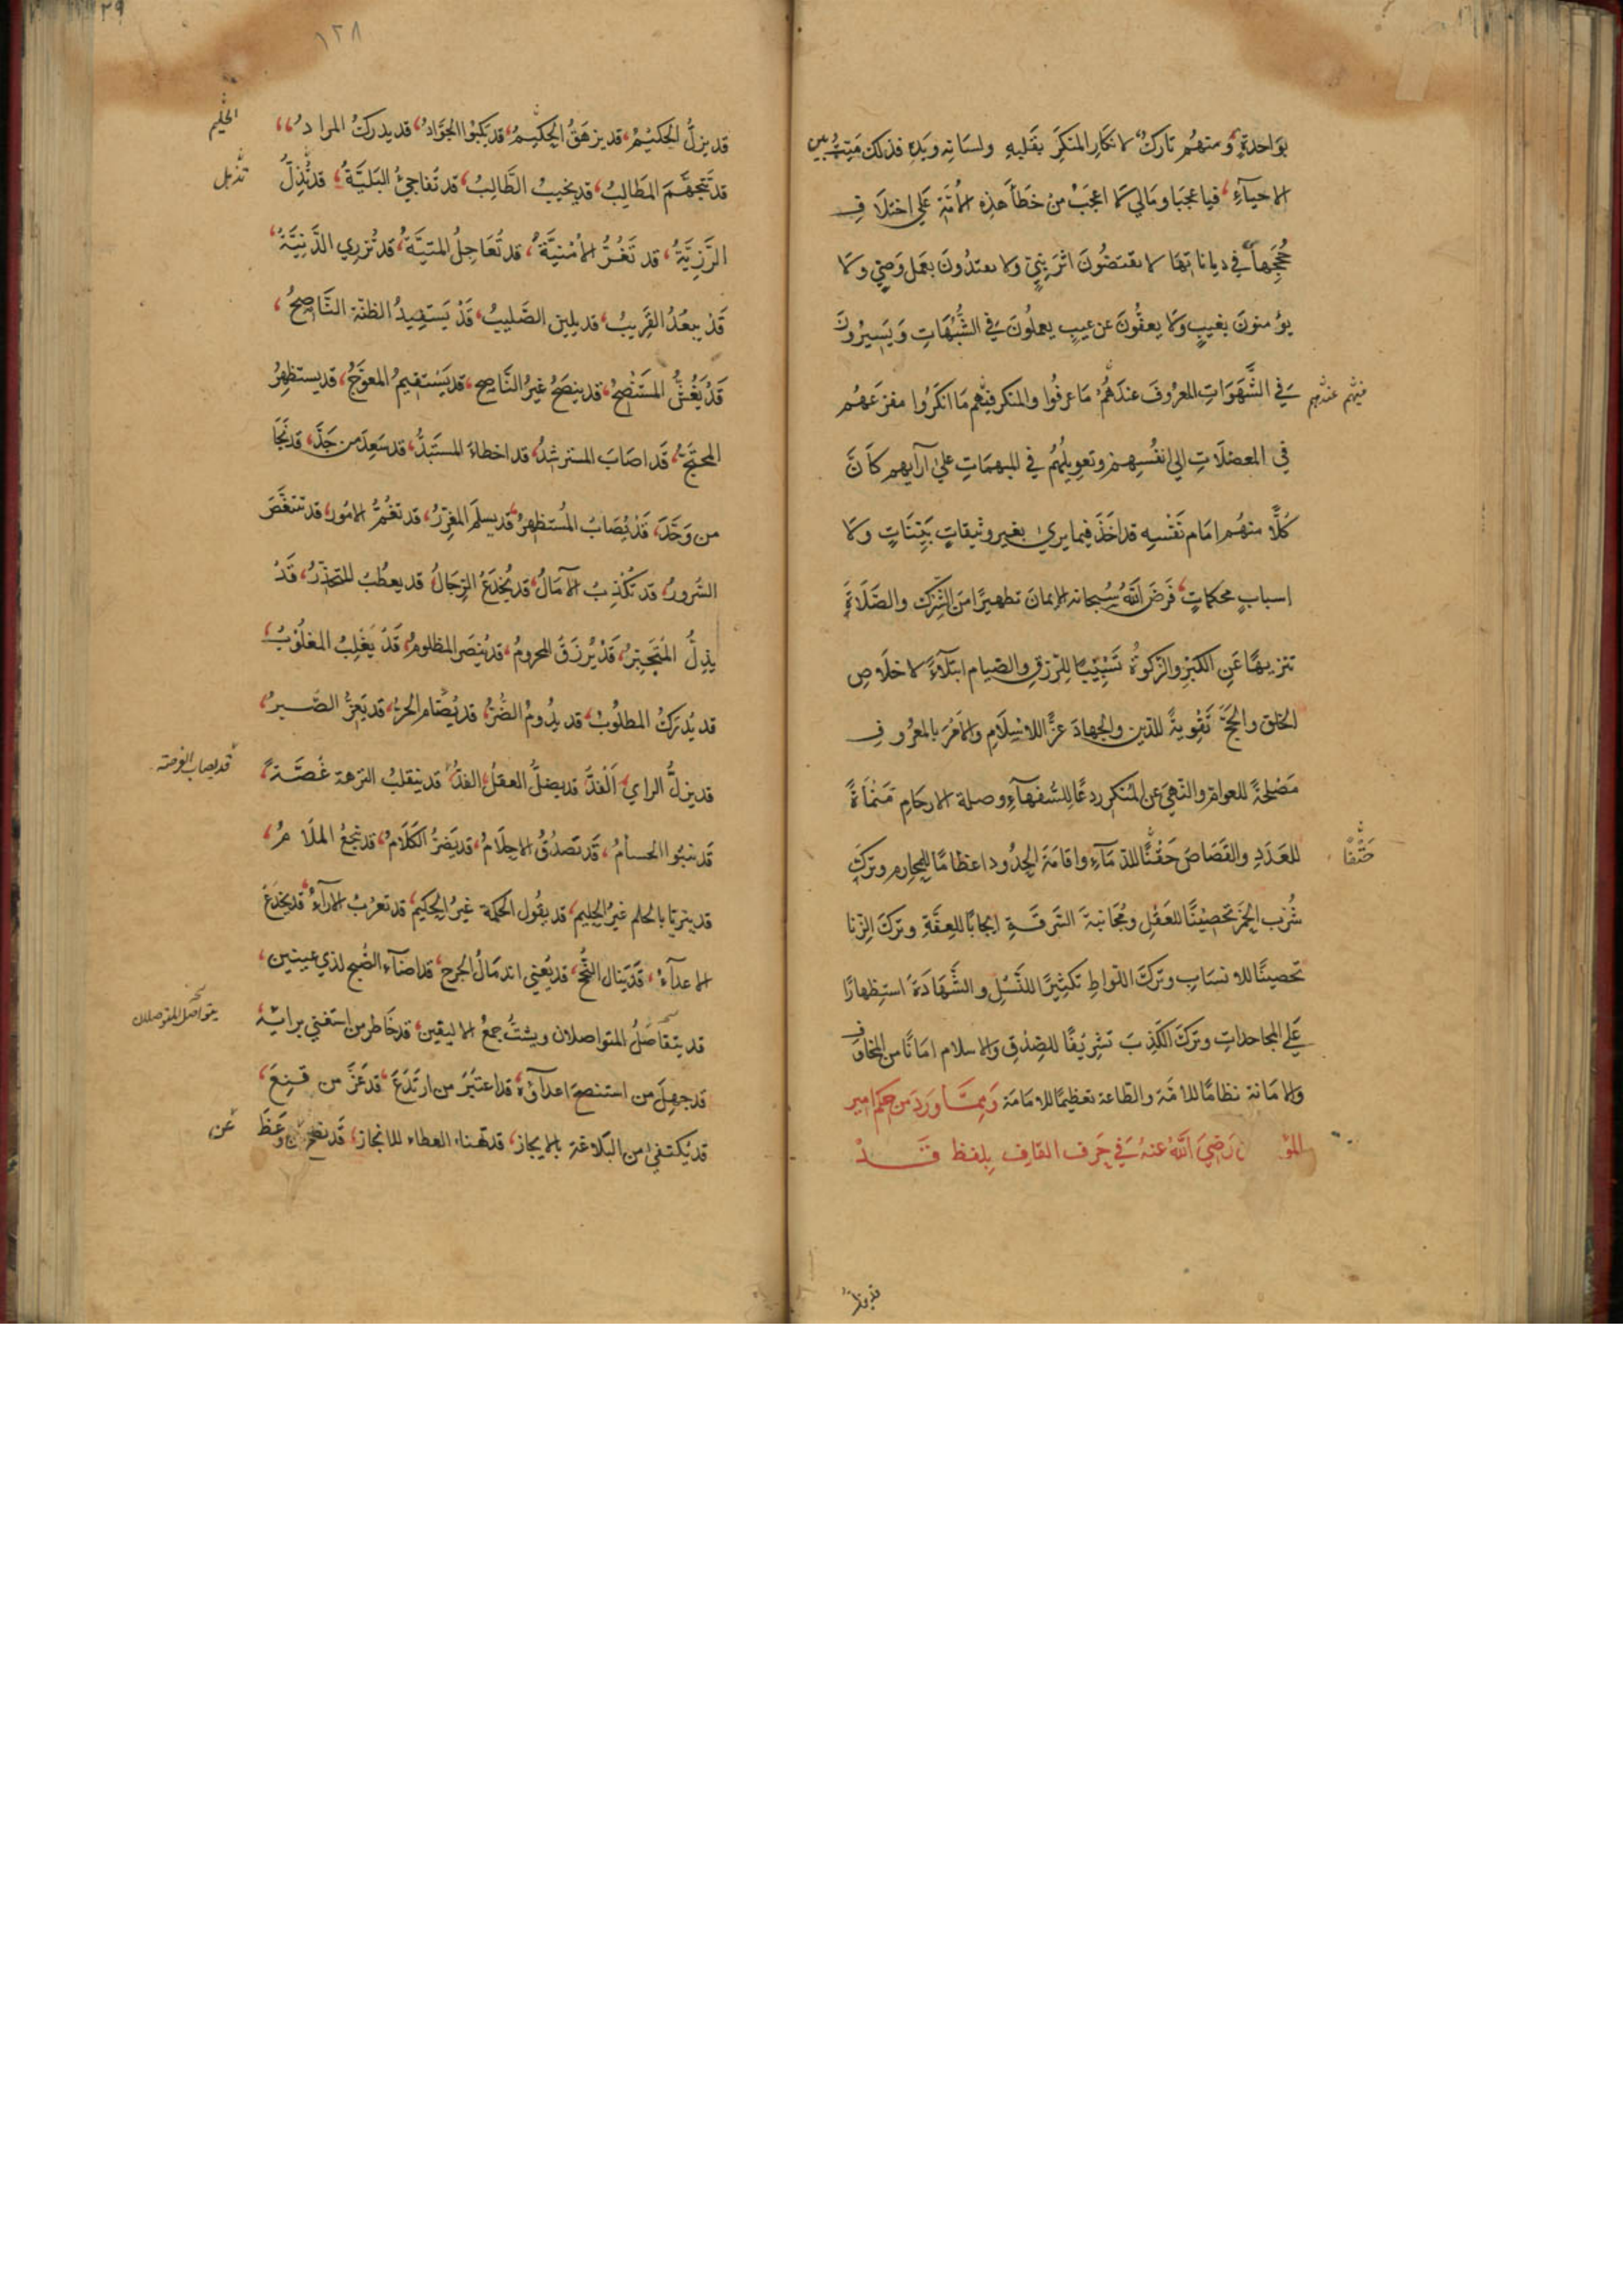 بوَاحدةٍ، ومنهُم تاركٌ لانكارِ المنكَرِ بقَلبِهِ ولسَانِهِ ويَدِهِ فذلكَ مَيِّتُ بين
الاحيآءِ، فيا عجبًا ومَالي لا اعجَبُ من خَطَأِ هَذِهِ الامَّةِ عَلى اختلَافِ
حُجَجِهَا في دياناتِهَا لا يقتصُّونَ اثرَ نبيٍّ ولا يعتدُونَ بعَملِ وَصِيٍّ ولَا
يؤمنونَ بغيبٍ ولَا يعفُّونَ عن عيبٍ يعملُونَ في الشُّبُهَاتِ وَيَسيرُونَ
في الشَّهَوَاتِ المعرُوفَ عندَهُمْ مَا عرفُوا والمنكر فيهم مَا انكَرُوا مفزعَهُم
فيهم عندهم
في المعضلَاتِ الي انفُسِهِم وتعويلُهُم في المبهمَاتِ عليٰ آرآيهم كَاَنَّ
كُلًّا منهُم امَام نَفْسِهِ قد اخَذَ فيما يريٰ بغير وثيقاتٍ بَيِّنَاتٍ ولَا
اسبابٍ محكماتٍ، فَرَضَ اللهُ سُبحانه الايمانَ تطهيرًا منَ الشِّرْكِ والصَّلَاةَ
تنزيهًا عَنِ الكبْرِ والزكوةَ تَسْبِيبًا للرّزقِ والصّيام ابتلآءً لاخلَاصِ
الخلق والحَجَّ تَقْوِيةً للدّين والجهادَ عزًّا للاسْلَامِ والامْرَ بالمعْرُوفِ
مَصْلحةً للعوام والنّهيَ عن المُنكَرِ ردعًا للسُّفهآءِ وصلة الارحَامِ مَنْمَاةً
للعَدَدِ والقصَاصَ حَقْنًا للدّمآءِ واقامَةَ الحدُودِ اعظامًا للمحارم وتركَ
حَقْنًا
شُرْبِ الخمرِ تحْصِيْنًا للعَقْلِ ومُجَانبَةَ السَّرِقَةِ ايجَابًا للعِفَّةِ وتركَ الزّنا
تحصينًا للانسَابِ وتركَ اللّواطِ تَكثِيْرًا للنَّسْلِ والشَّهَادَةَ استِظهارًا
عَلَى المجاحداتِ وتركَ الكَذِبِ تشرِيْفًا للصّدْقِ والاسلام امَانًا من المخاوفِ
والامَانة نظامًا للامّة والطّاعة تعظيمًا للامَامَة وَمِمَّا وَرَدَ من حكم امير
المؤ ن رَضِيَ اللهُ عنهُ في حَرف القاف بِلفظ قَدْ
١٢٨
قد يزلُّ الحَكيْمُ، قد يزهَقُ الحَكيْمُ، قد يَكْبُوا الجَوَادُ، قد يدركُ المرادُ،
الحليم
قد تتجَهَّمَ المَطَالِبُ، قد يخيبُ الطَّالِبُ، قد تُفاجئُ البَليَّةُ، قد تُذِلُّ
تذل
الرَّزِيَّةُ، قد تَغُرُّ الاُمْنيَّةُ، قد تُعَاجِلُ المنيَّةُ، قد تُزرِي الدَّنِيَّةُ،
قَدْ يبعُدُ القَرِيبُ، قد يلين الصَّليبُ، قَدْ يَستَفِيدُ الظنّةَ النَّاصِحُ،
قَدْ يَغُشُّ المُسْتَنْصَحُ، قد ينصَحُ غيرُ النَّاصِحِ، قد يَسْتَقِيمُ المعوَجُّ، قد يستظهِرُ
المحتَجُّ، قَد اصَابَ المسترشدُ، قد اخطاءَ المستَبَدُّ، قد سَعِدَ من جَدَّ، قد نجَا
من وَحَّدَ، قَدْ يُصَابُ المُستظهِرُ، قد يسلَم المغرّرُ، قد تعُمُّ الامُور، قد تتنغَّصَ
السُّرورُ، قد تكْذِبُ الآمَالُ، قد يُخدَعُ الرّجَالُ، قد يعطبُ المتحذّرُ، قَدْ
يذِلُّ المُتَجَبِّرُ، قَدْ يُرْزَقُ المحرومُ، قد يُنصَر المظلومُ، قَدْ يَغْلِبُ المغلُوْبُ،
قد يُدرَكُ المطلُوْبُ، قد يدُومُ الضُّرُّ، قد يُضَام الحُرُّ، قد يَعِزُّ الصَّبرُ،
قد يزلُّ الراي الفَذُّ، قد يضلُّ العقلُ الفذُّ، قد ينقلبُ النزهة غُصَّةً،
قد يصاب الفرصة
قد ينبُوا الحسامُ، قَد تَصدُقُ الاحلَامُ، قد يَضرُّ الكَلَامُ، قد ينجعُ الملَامُ،
قد يتزيّا بالحلم غيرُ الحليم، قد يقُول الحكمَة غيرُ الحكيم، قد تعزُبُ الآرآءُ، قد يخدَعُ
الاعدآءُ، قَد يَنال النُّجْحُ، قد يُعيي اندمَالُ الجرح، قد اضآء الصُّبح لذي عينين،
قد يتفاصَلُ المتواصلان ويشتُّ جمعُ الاليفين، قد خَاطر من استغني برايه،
يتواصل المتفاصلان
قد جهِلَ من استنصحَ اعدآؤُه، قد اعتَبَرَ من ارتَدَعَ، قد عَزَّ من قَنِعَ،
قد يُكتفيٰ من البَلَاغة بالايجاز، قد تهناء العطاء للانجاز، قَد نصح من وعَظَ
عن